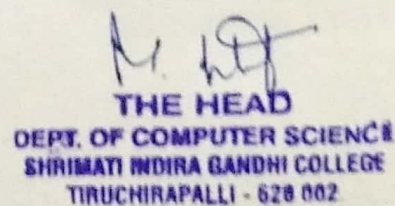 M.
THE HEAD
DEPT. OF COMPUTER SCIENCE
SHRIMATI INDIRA GANDHI COLLEGE
TIRUCHIRAPALLI - 620 002